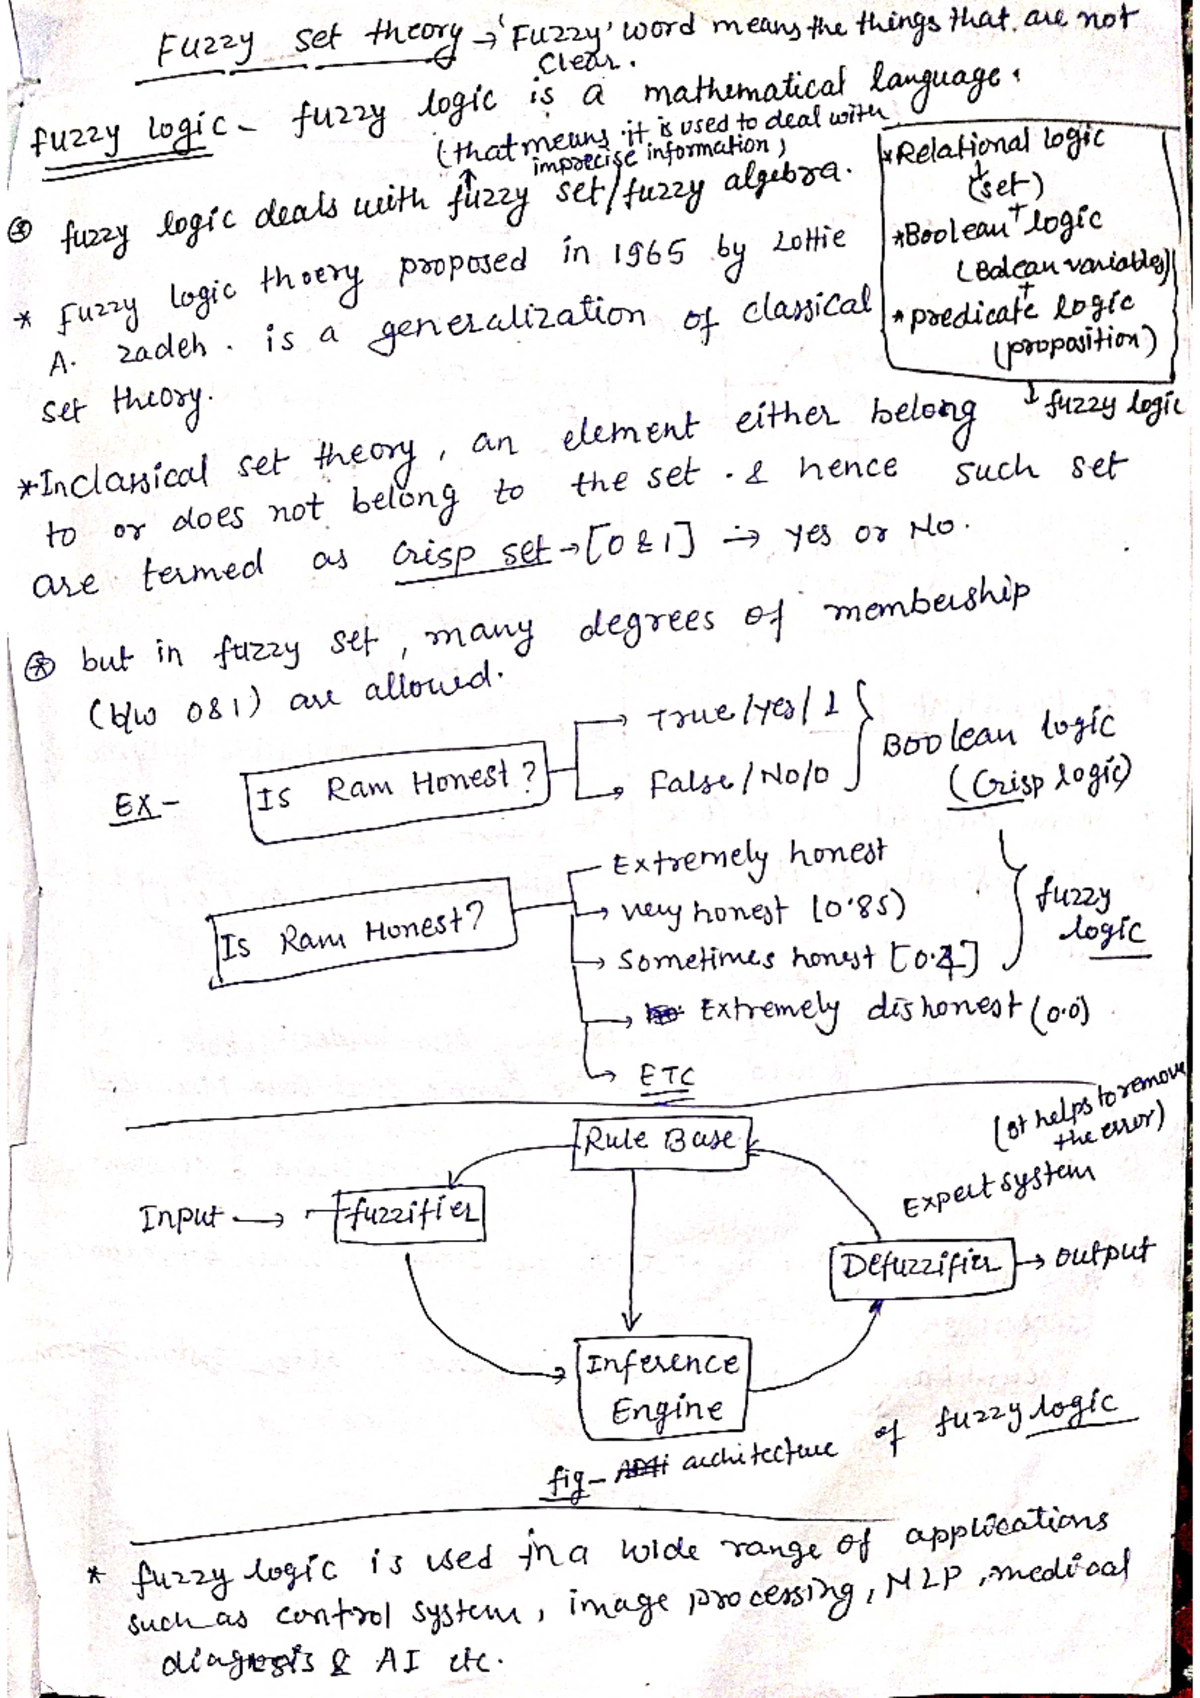 Fuzzy set theory → 'Fuzzy' word means the things that are not
clear.
fuzzy logic - fuzzy logic is a mathematical language.
(that means it is used to deal with
imprecise information)
fuzzy logic deals with fuzzy set/fuzzy algebra.
* Fuzzy logic thoery proposed in 1965 by Lottie
A. zadeh. is a generalization of classical
set theory.
* Relational logic
(set)
+
* Boolean logic
(Balean variables)
+
* predicate logic
(proposition)
↓ fuzzy logic
* In classical set theory, an element either belong
to or does not belong to the set. & hence such set
are termed as Crisp set → [0 & 1] → yes or No.
* but in fuzzy set, many degrees of membership
(b/w 0 & 1) are allowed.
EX -
Is Ram Honest?
→ True/yes/1
→ False/No/0
Boolean logic
(Crisp logic)
Is Ram Honest?
Extremely honest
→ very honest (0.85)
→ Sometimes honest
→ Extremely dishonest (0.0)
→ ETC
fuzzy
logic
(It helps to remove
the error)
Expert system
Rule Base
Input → fuzzifier
Defuzzifier → output
Inference
Engine
fig - architecture of fuzzy logic
* fuzzy logic is used in a wide range of applications
such as control system, image processing, NLP, medical
diagnosis & AI etc.